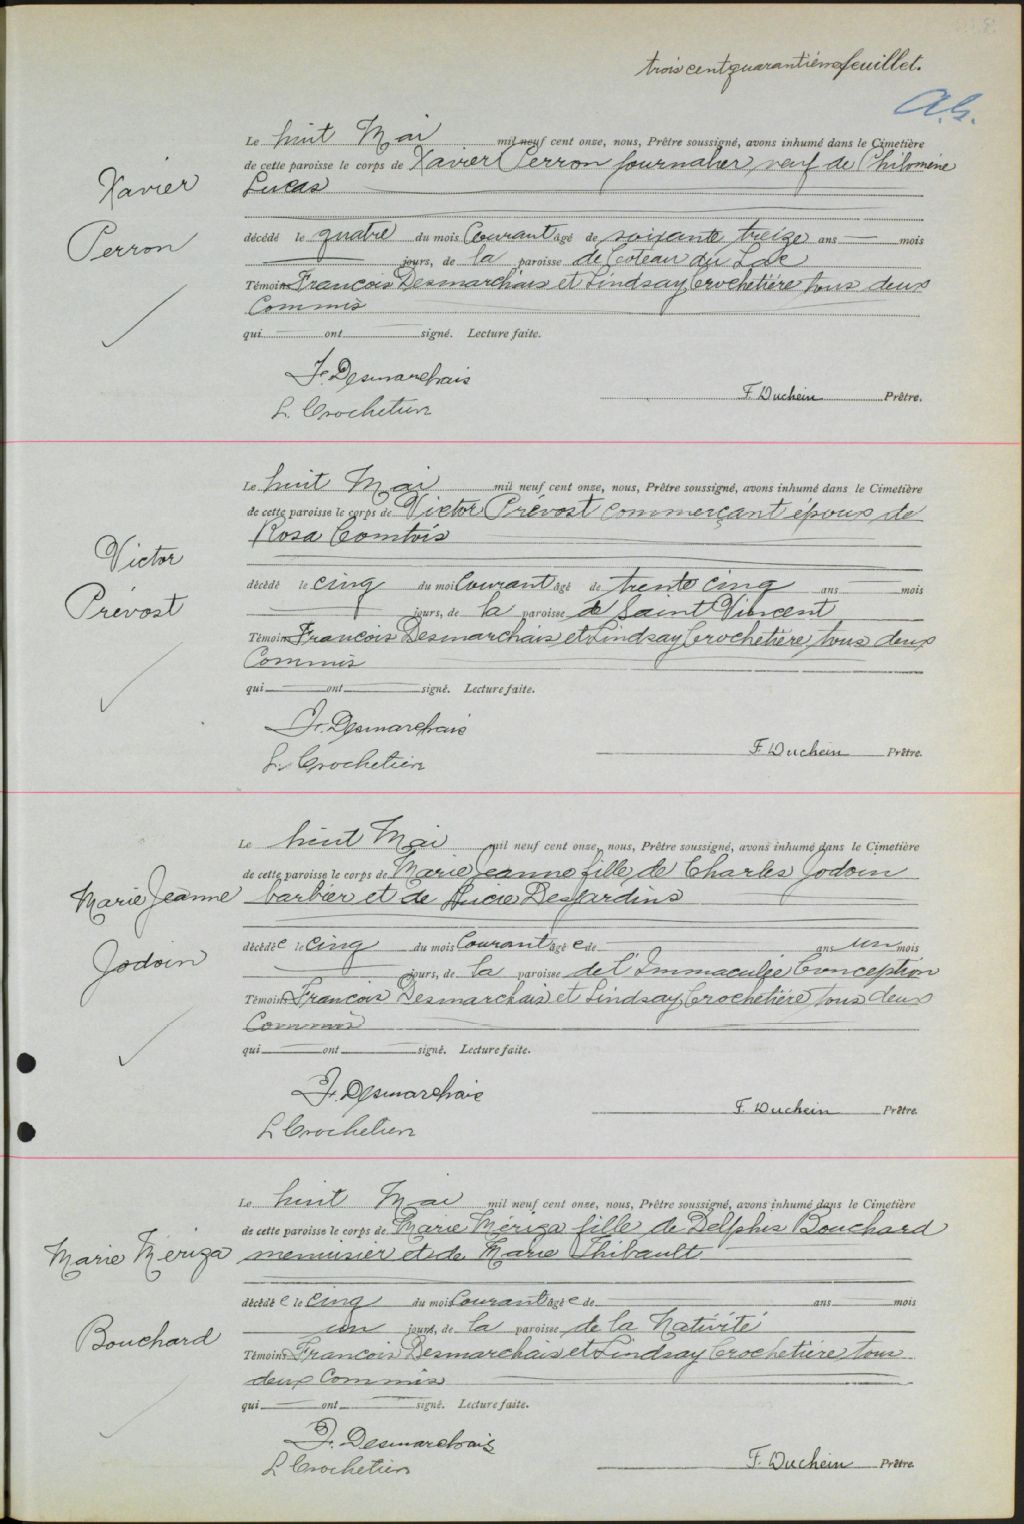 trois cent quarantième feuillet.
A.G.
Le huit Mai mil neuf cent onze, nous, Prêtre soussigné, avons inhumé dans le Cimetière
de cette paroisse le corps de Xavier Perron journalier, veuf de Philomène
Xavier
Lucas
Perron
décédé le quatre du mois Courant âgé de soixante treize ans mois
jours, de la paroisse de Coteau du Lac
Témoins Francois Desmarchais et Lindsay Crochetière tous deux
Commis
qui ont signé. Lecture faite.
F. Desmarchais
F. Duchein Prêtre.
L. Crochetière
Le huit Mai mil neuf cent onze, nous, Prêtre soussigné, avons inhumé dans le Cimetière
de cette paroisse le corps de Victor Prévost commerçant époux de
Rosa Comtois
Victor
Prévost
décédé le cinq du mois Courant âgé de trente cinq ans mois
jours, de la paroisse de Saint Vincent
Témoins Francois Desmarchais et Lindsay Crochetière, tous deux
Commis
qui ont signé. Lecture faite.
F. Desmarchais
F. Duchein Prêtre.
L. Crochetière
Le huit Mai mil neuf cent onze, nous, Prêtre soussigné, avons inhumé dans le Cimetière
de cette paroisse le corps de Marie Jeanne fille de Charles Jodoin
Marie Jeanne
barbier et de Lucie Desjardins
Jodoin
décédée le cinq du mois Courant âgée de ans un mois
jours, de la paroisse de l'Immaculée Conception
Témoins Francois Desmarchais et Lindsay Crochetière tous deux
Commis
qui ont signé. Lecture faite.
F. Desmarchais
F. Duchein Prêtre.
L Crochetière
Le huit Mai mil neuf cent onze, nous, Prêtre soussigné, avons inhumé dans le Cimetière
de cette paroisse le corps de Marie Mériza fille de Delphis Bouchard
Marie Mériza
menuisier et de Marie Thibault
décédée le cinq du mois Courant âgée de ans mois
Bouchard
un jours, de la paroisse de la Nativité
Témoins Francois Desmarchais et Lindsay Crochetière tous
deux Commis
qui ont signé. Lecture faite.
F. Desmarchais
F. Duchein Prêtre.
L Crochetière